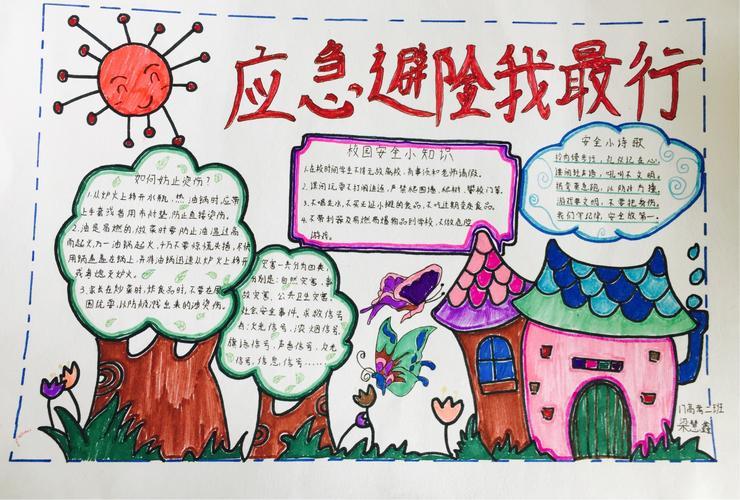 应急避险我最行
校园安全小知识
1.在校时间学生不得无故离校,有事须和老师请假。
2.课间玩耍不打闹追逐,严禁爬围墙、爬树、攀校门等。
3.不喝生水,不买无证小摊的食品,不吃过期变质食品。
4.不带利器及易燃易爆物品到学校,不做危险
游戏。
安全小诗歌
校内慢步行,
课间轻声语,吼叫不文明。
游戏要文明,不要把身伤。
我们牢记,安全放第一。
如何防止烫伤?
1.从炉火上移开水瓶,热油锅时,应带
上手套或者用布衬垫,防止直接烫伤。
2.油是易燃的,做菜时要防止油温过高
而起火,万一油锅起火,千万不要惊慌失措,
锅盖盖在锅上,并将油锅迅速从炉火上移开
或者熄灭炉火。
3.家长在炒菜时,炸食品时,不要在厨房
围玩耍,以防被溅出来的油烫伤。
灾害一共分为四类,
分别是:自然灾害、事
故灾害、公共卫生灾害、
社会安全事件。求救信号
:火光信号、浓烟信号、
旗语信号、声音信号、反光
信号、信息信号……
17高考二班
梁慧鑫